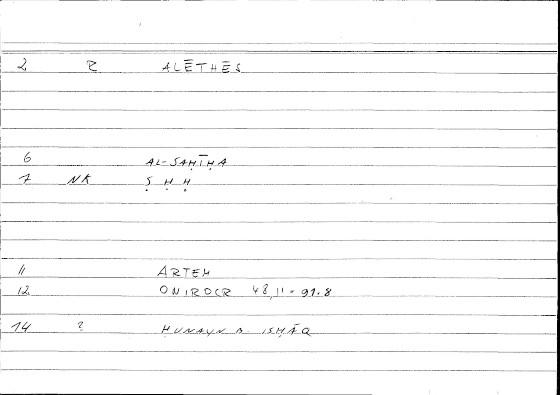 2 R ALĒTHĒS
6 AL-ṢAḤĪḤA
7 NK Ṣ Ḥ Ḥ
11 ARTEM
12 ONIROCR 48,11 = 91.8
14 2 ḤUNAYN B. ISḤĀQ